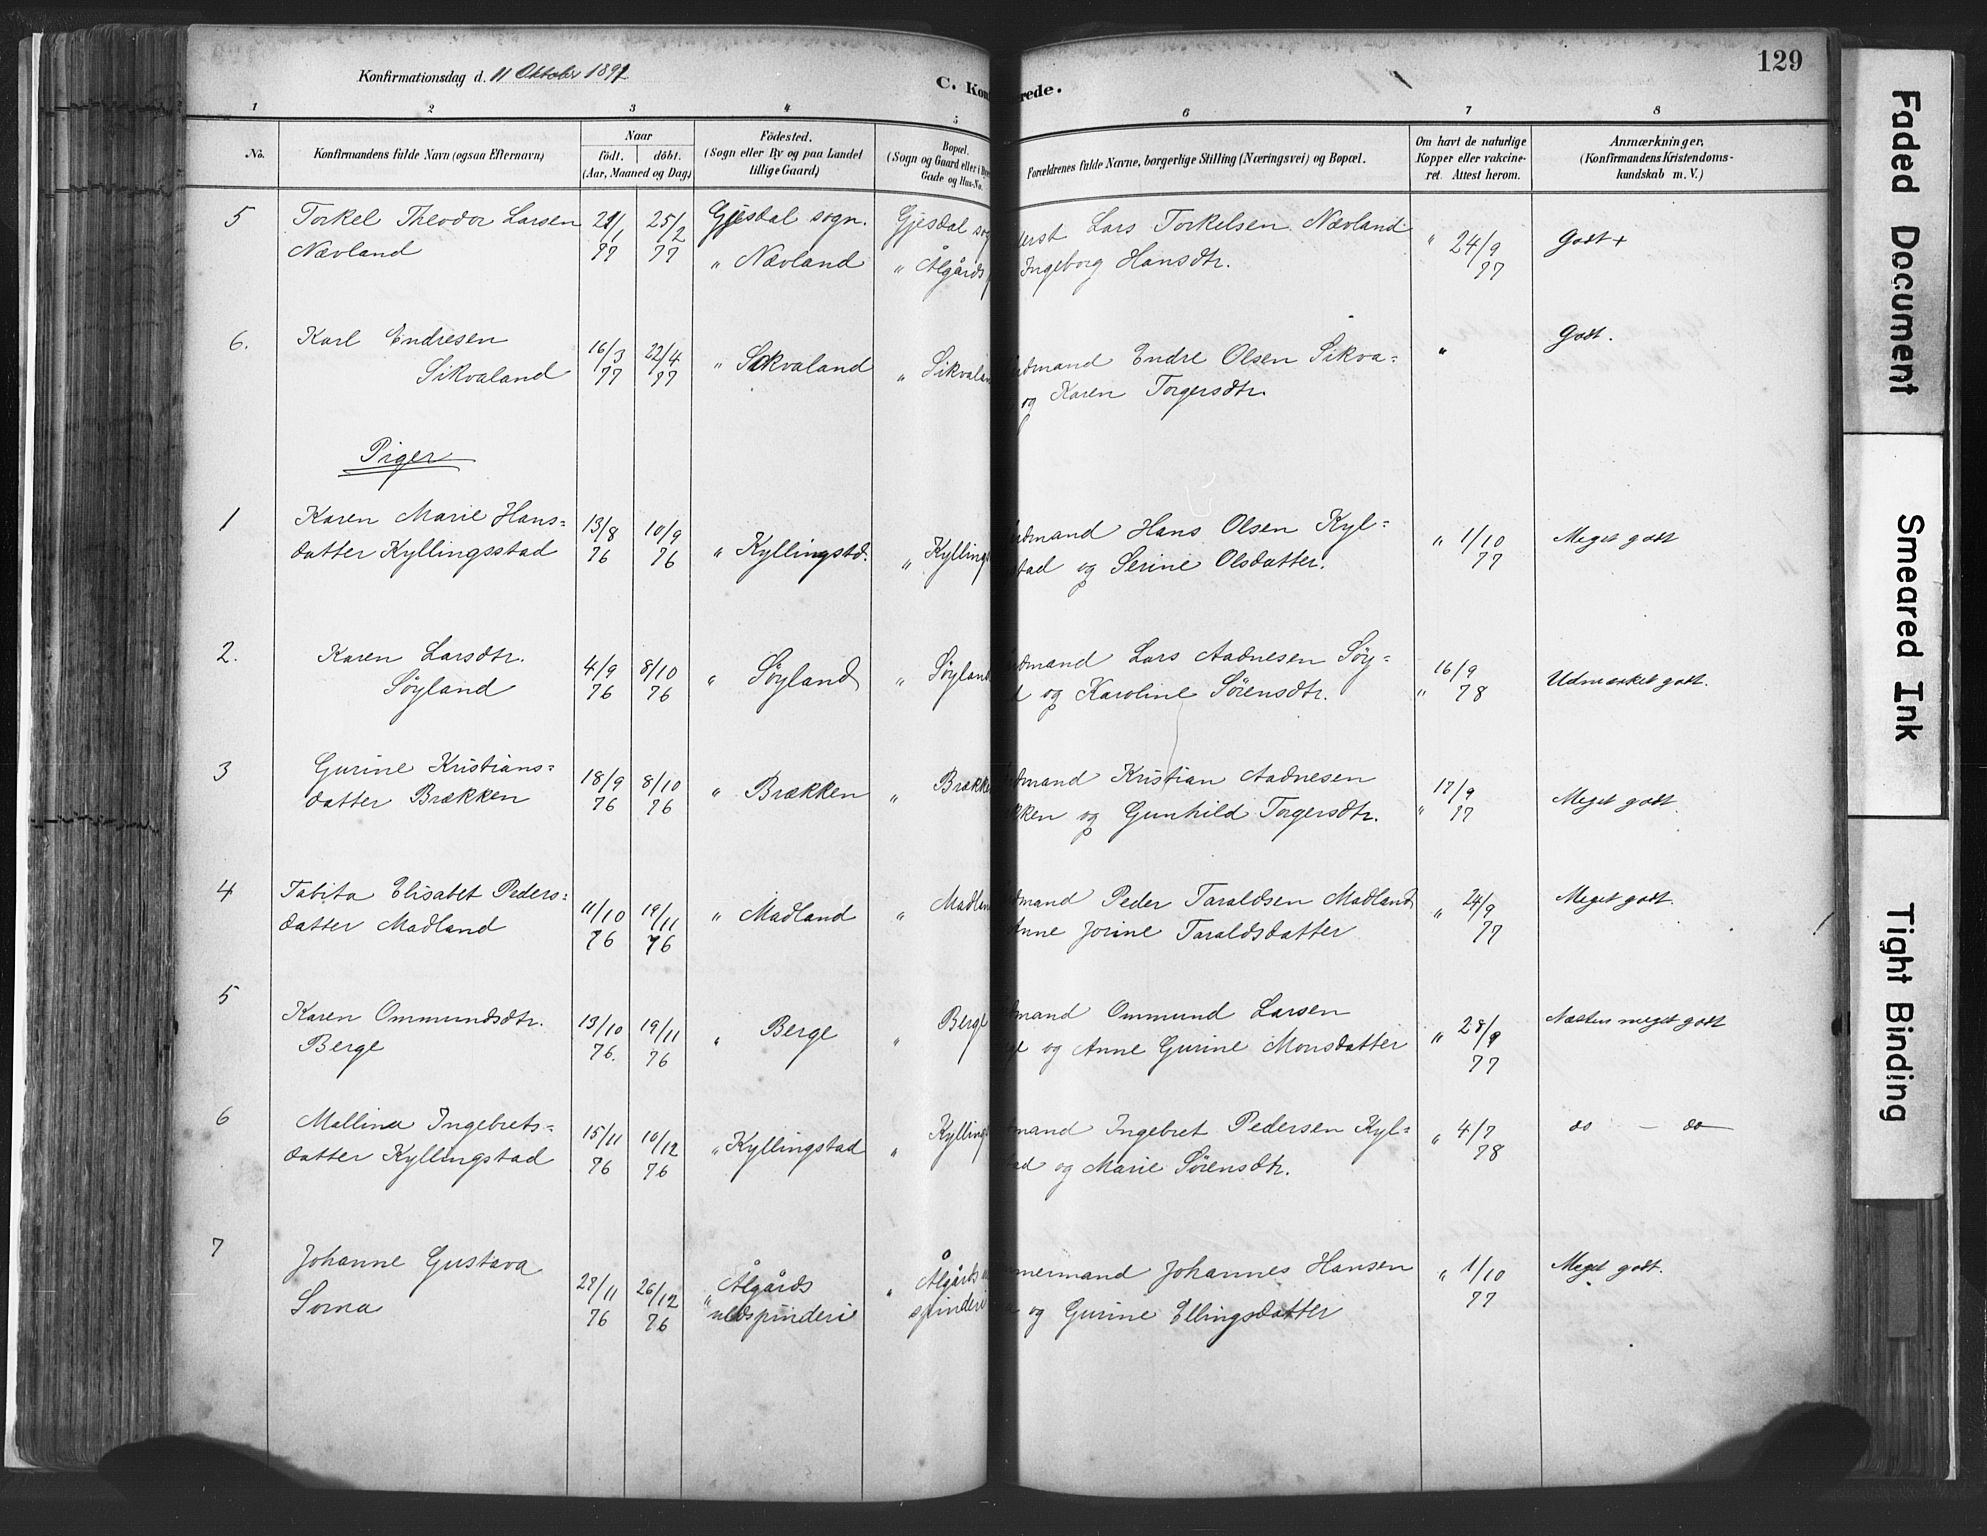 129
Konfirmationsdag d. 11 Oktober 1891
C. Kon rede.
1 2 3 4 5 6 7 8
No.
Konfirmandens fulde Navn (ogsaa Efternavn)
Naar
födt. döbt.
(Aar, Maaned og Dag)
Födested.
(Sogn eller By og paa Landet
tillige Gaard)
Bopæl.
(Sogn og Gaard eller i
Gade og Hus-No.
Forældrenes fulde Navne, borgerlige Stilling (Næringsvei) og Bopæl.
Om havt de naturlige
Kopper eller vakcine-
ret. Attest herom.
Anmærkninger,
(Konfirmandens Kristendoms-
kundskab m. V.)
5 Torkel Theodor Larsen 21/1 25/2 Gjesdal sogn. Gjesdal sog Lars Torkelsen Nævland " 24/9 Godt +
Nævland 77 77 " Nævland " Ålgårds Ingeborg Hansdtr. 77
6. Karl Endresen 16/3 22/4 " Sikvaland " Sikvalan dmand Endre Olsen Sikva= " Godt.
Sikvaland 77 77 og Karen Torgersdtr.
Piger
1 Karen Marie Hans= 13/8 10/9 " Kyllingstd. " Kyllings dmand Hans Olsen Kyl= " 1/10 Meget godt
datter Kyllingsstad 76 76 stad og Serine Olsdatter. 77
2. Karen Larsdtr. 4/9 8/10 " Söyland " Söyland dmand Lars Aadnesen Söy= 16/9 Udmærket godt.
Söyland 76 76 d og Karoline Sörensdtr. " 78
3 Gurine Kristians= 18/9 8/10 " Brækken " Brække dmand Kristian Aadnesen 17/9 Meget godt.
datter Brækken 76 76 kken og Gunhild Torgersdtr. " 77
4 Tabita Elisabet Peders= 11/10 19/11 " Madland " Madlan dmand Peder Taraldsen Madland " 24/9 Meget godt.
datter Madland 76 76 Anne Jorine Taraldsdatter 77
5 Karen Ommundsdtr. 13/10 19/11 " Berge " Berge dmand Ommund Larsen " 28/9 Næsten meget godt
Berge 76. 76 ge og Anne Gurine Monsdatter 77
6 Mallina Ingebrets= 15/11 10/12 " Kyllingstad " Kylling mand Ingebret Pedersen Kyl= " 4/7 do — do
datter Kyllingstad 76 76 tad og Marie Sörensdtr. 78
7 Johanne Gustava 27/11 26/12 " Ålgårds " Ålgårds mermand Johannes Hansen " 1/10 Meget godt.
Soma 76 76 uldspinderi spinderi a og Gurine Ellingsdatter 77
Faded Document
Smeared Ink
Tight Binding